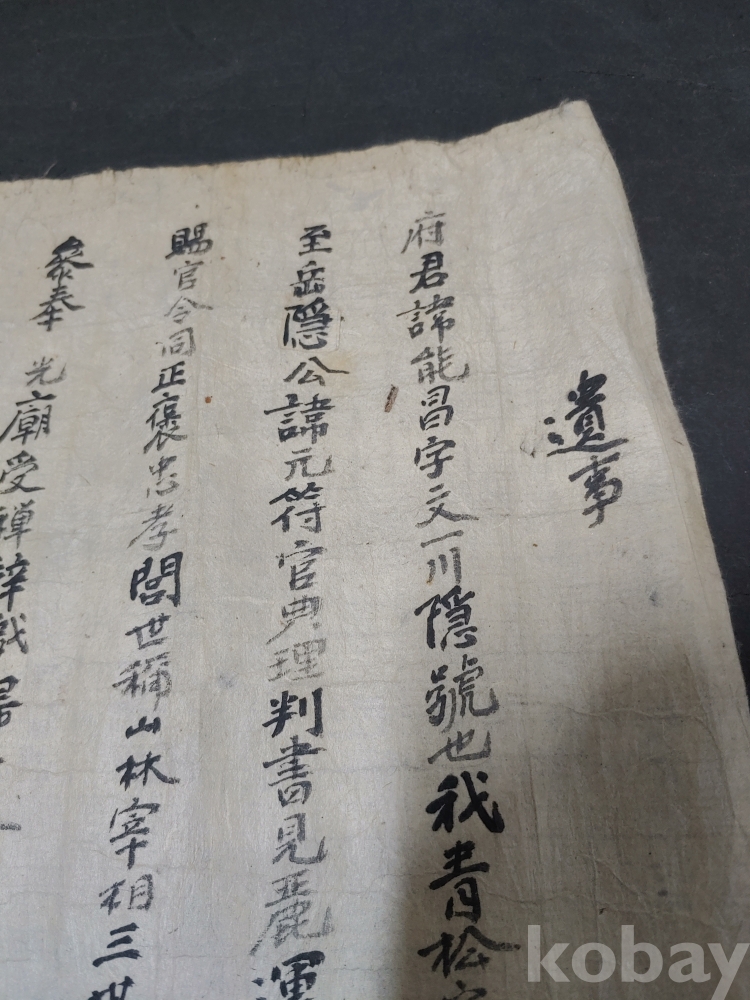 遺事
府君諱能昌字文一川隱號也我青松
至岳隱公諱元符官典理判書見麗運
賜官令同正褒忠孝閭世稱山林宰相三世
叅奉 光廟受禅辞
kobay